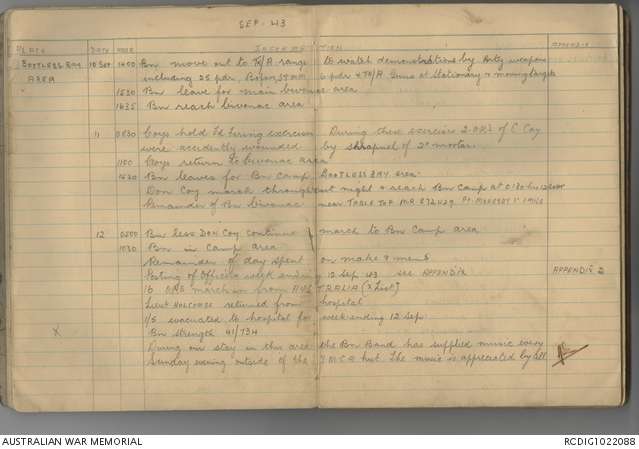 SEP. 43
PLACE DATE HOUR INFORMATION APPENDIX
BOOTLESS BAY AREA 10 Sep 1400 Bn move out to TK/A range to watch demonstrations by Arty weapons
including 25 pdr, Bofors, 6 pdr & TK/A Guns at Stationary & moving targets
1530 Bn leave for main bivouac area
1635 Bn reach bivouac area
11 0830 Coys hold Fd Firing exercises. During these exercises 2 ORs of C Coy
were accidently wounded by shrapnel of 2" mortar.
1100 Coys return to bivouac area
1630 Bn leaves for Bn Camp, BOOTLESS BAY area.
Don Coy march throughout night & reach Bn Camp at 0130 hrs 12 Sep
Remainder of Bn bivouac near TABLE TOP MR 872429 Pt. MORESBY 1" SERIES
12 0500 Bn less DON Coy continue march to Bn Camp area
1030 Bn in Camp area
Remainder of day spent on make & mend
Posting of Officers week ending 12 Sep 43 see APPENDIX APPENDIX 2
16 ORS march in from AUSTRALIA (X List)
Lieut HOLCOMBE returned from hospital
1/5 evacuated to hospital for week ending 12 Sep
X Bn strength 41/734
During our stay in this area the Bn Band has supplied music every
Sunday evening outside of the YMCA hut. The music is appreciated by all
AUSTRALIAN WAR MEMORIAL
RCDIG1022088